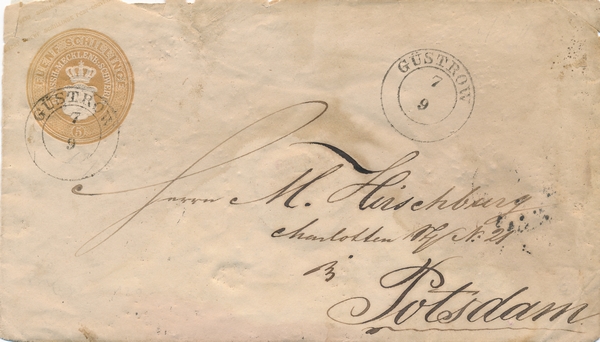 FUENF SCHILLINGE
GR.H. MECKLENB. SCHWERIN
5
GÜSTROW
7
9
GÜSTROW
7
9
Herrn M. Hirschburg
Charlotten No. 21
Potsdam